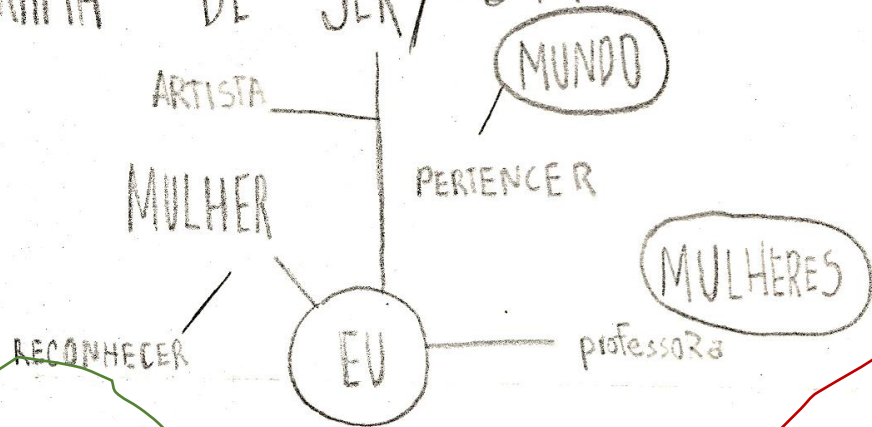 DE SER/
MUNDO
ARTISTA
PERTENCER
MULHER
MULHERES
RECONHECER
EU
professoRa